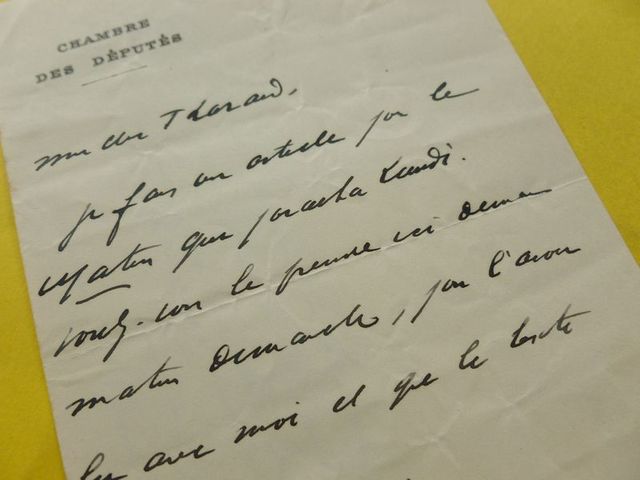 CHAMBRE
DES DÉPUTÉS
mon cher Tharaud,
je fais un article pour le
Matin qui paraîtra Lundi.
Voulez-vous le prendre ici demain
matin Dimanche, pour l'avoir
lu avec moi et que le texte